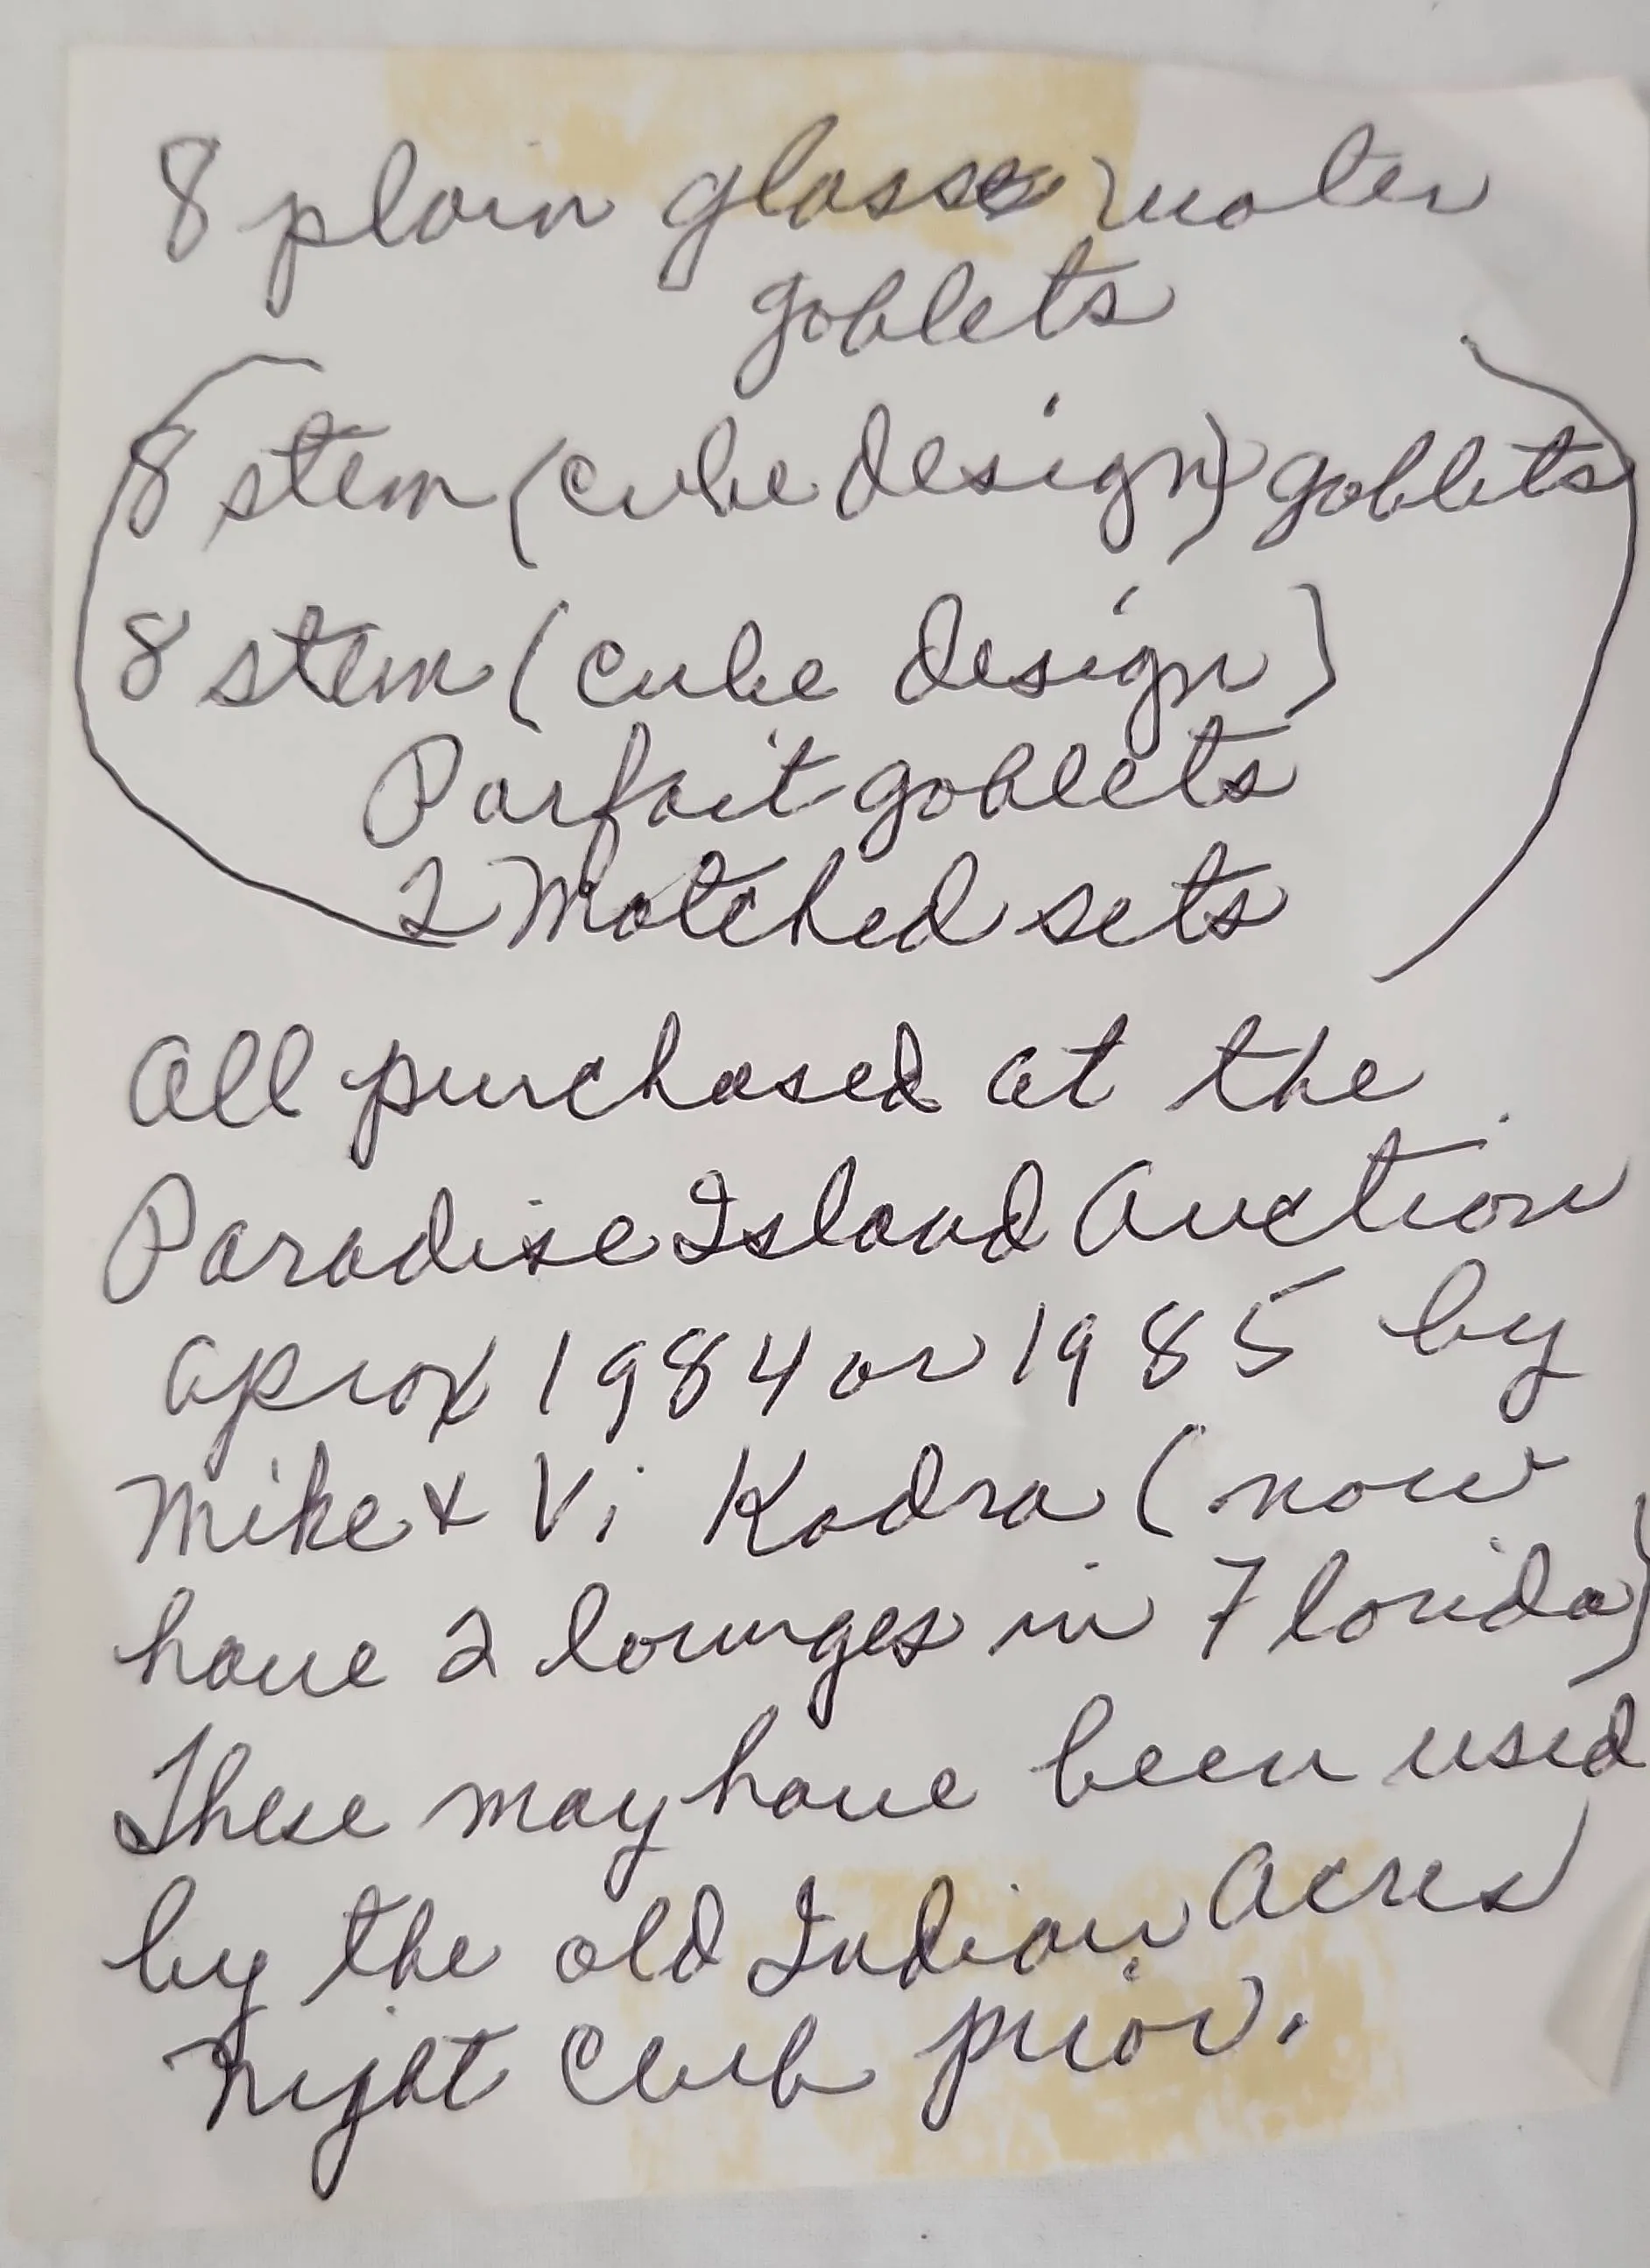 8 plain glass water
goblets
8 stem (cube design) goblets
8 stem (cube design)
Parfait goblets
2 Matched sets
All purchased at the
Paradise Island Auction
aprox 1984 or 1985 by
Mike & Vi Kadra (now
have 2 lounges in Florida)
These may have been used
by the old Indian Acres
Night Club prior.